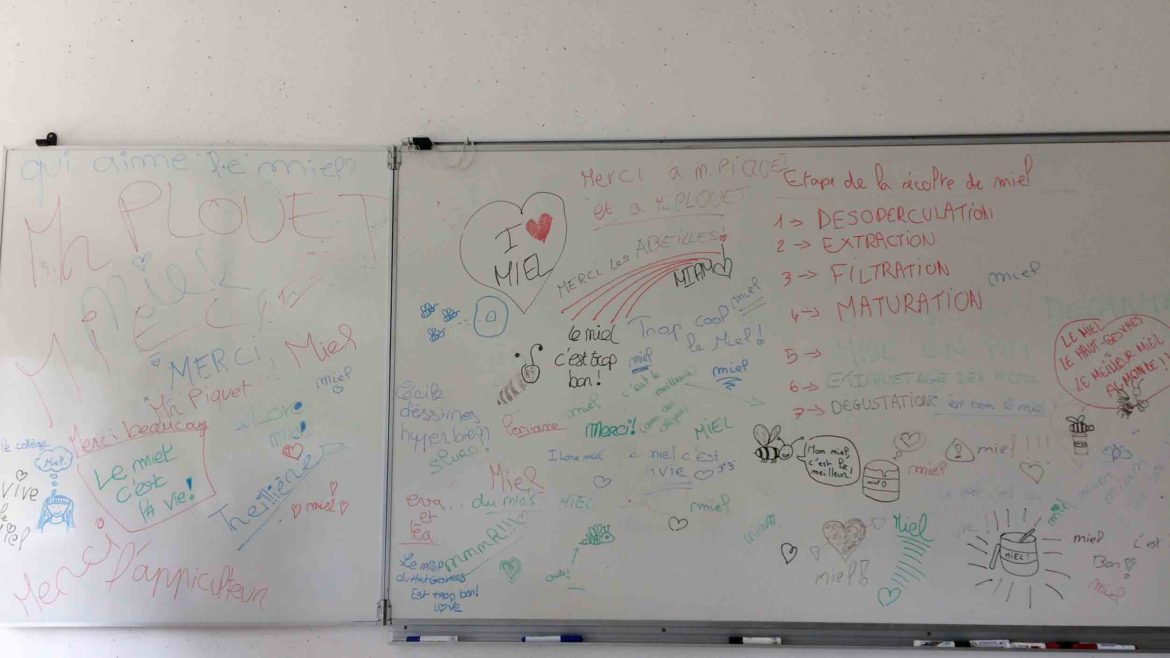 qui aime le miel?
Mr PLOUET
MERCI
MERCI,
Miel
Mr Piquet
miel
Merci beaucoup
Le miel
c'est
la vie!
le collège
Miel
VIVE
le
miel
miel
Merci l'appiculteur
I
MIEL
Merci a m. PIQUET
et a M. PLOUET
MERCI les ABEILLES!
MIAM
le miel
c'est trop
bon!
Trop cool
le Miel!
miel
miel
miel
c'est le
meilleur
miel
Merci!
MIEL
Cécile
déssines
hyper bien
slurp!
Loriane
I love miel
miel c'est
la vie
Miel
eva
et
Léa
du miel
MIEL
miel
mmmh!!!
Le miel
du Haut Gesvres
Est trop bon!
LOVE
Etape de la récolte de miel
1 → DESOPERCULATION
2 → EXTRACTION
3 → FILTRATION
miel
4 → MATURATION
5 → MISE EN POT
6 → ETIQUETAGE DES POTS
7 → DEGUSTATION
c'est bon le miel!
LE MIEL
LE HAUT-GESVRES
LE MEILLEUR MIEL
AU MONDE!
Mon miel
c'est le
meilleur!
miel
miel!!!!
miel!
Miel
MIEL!
miel
c'est
Bon!
miel